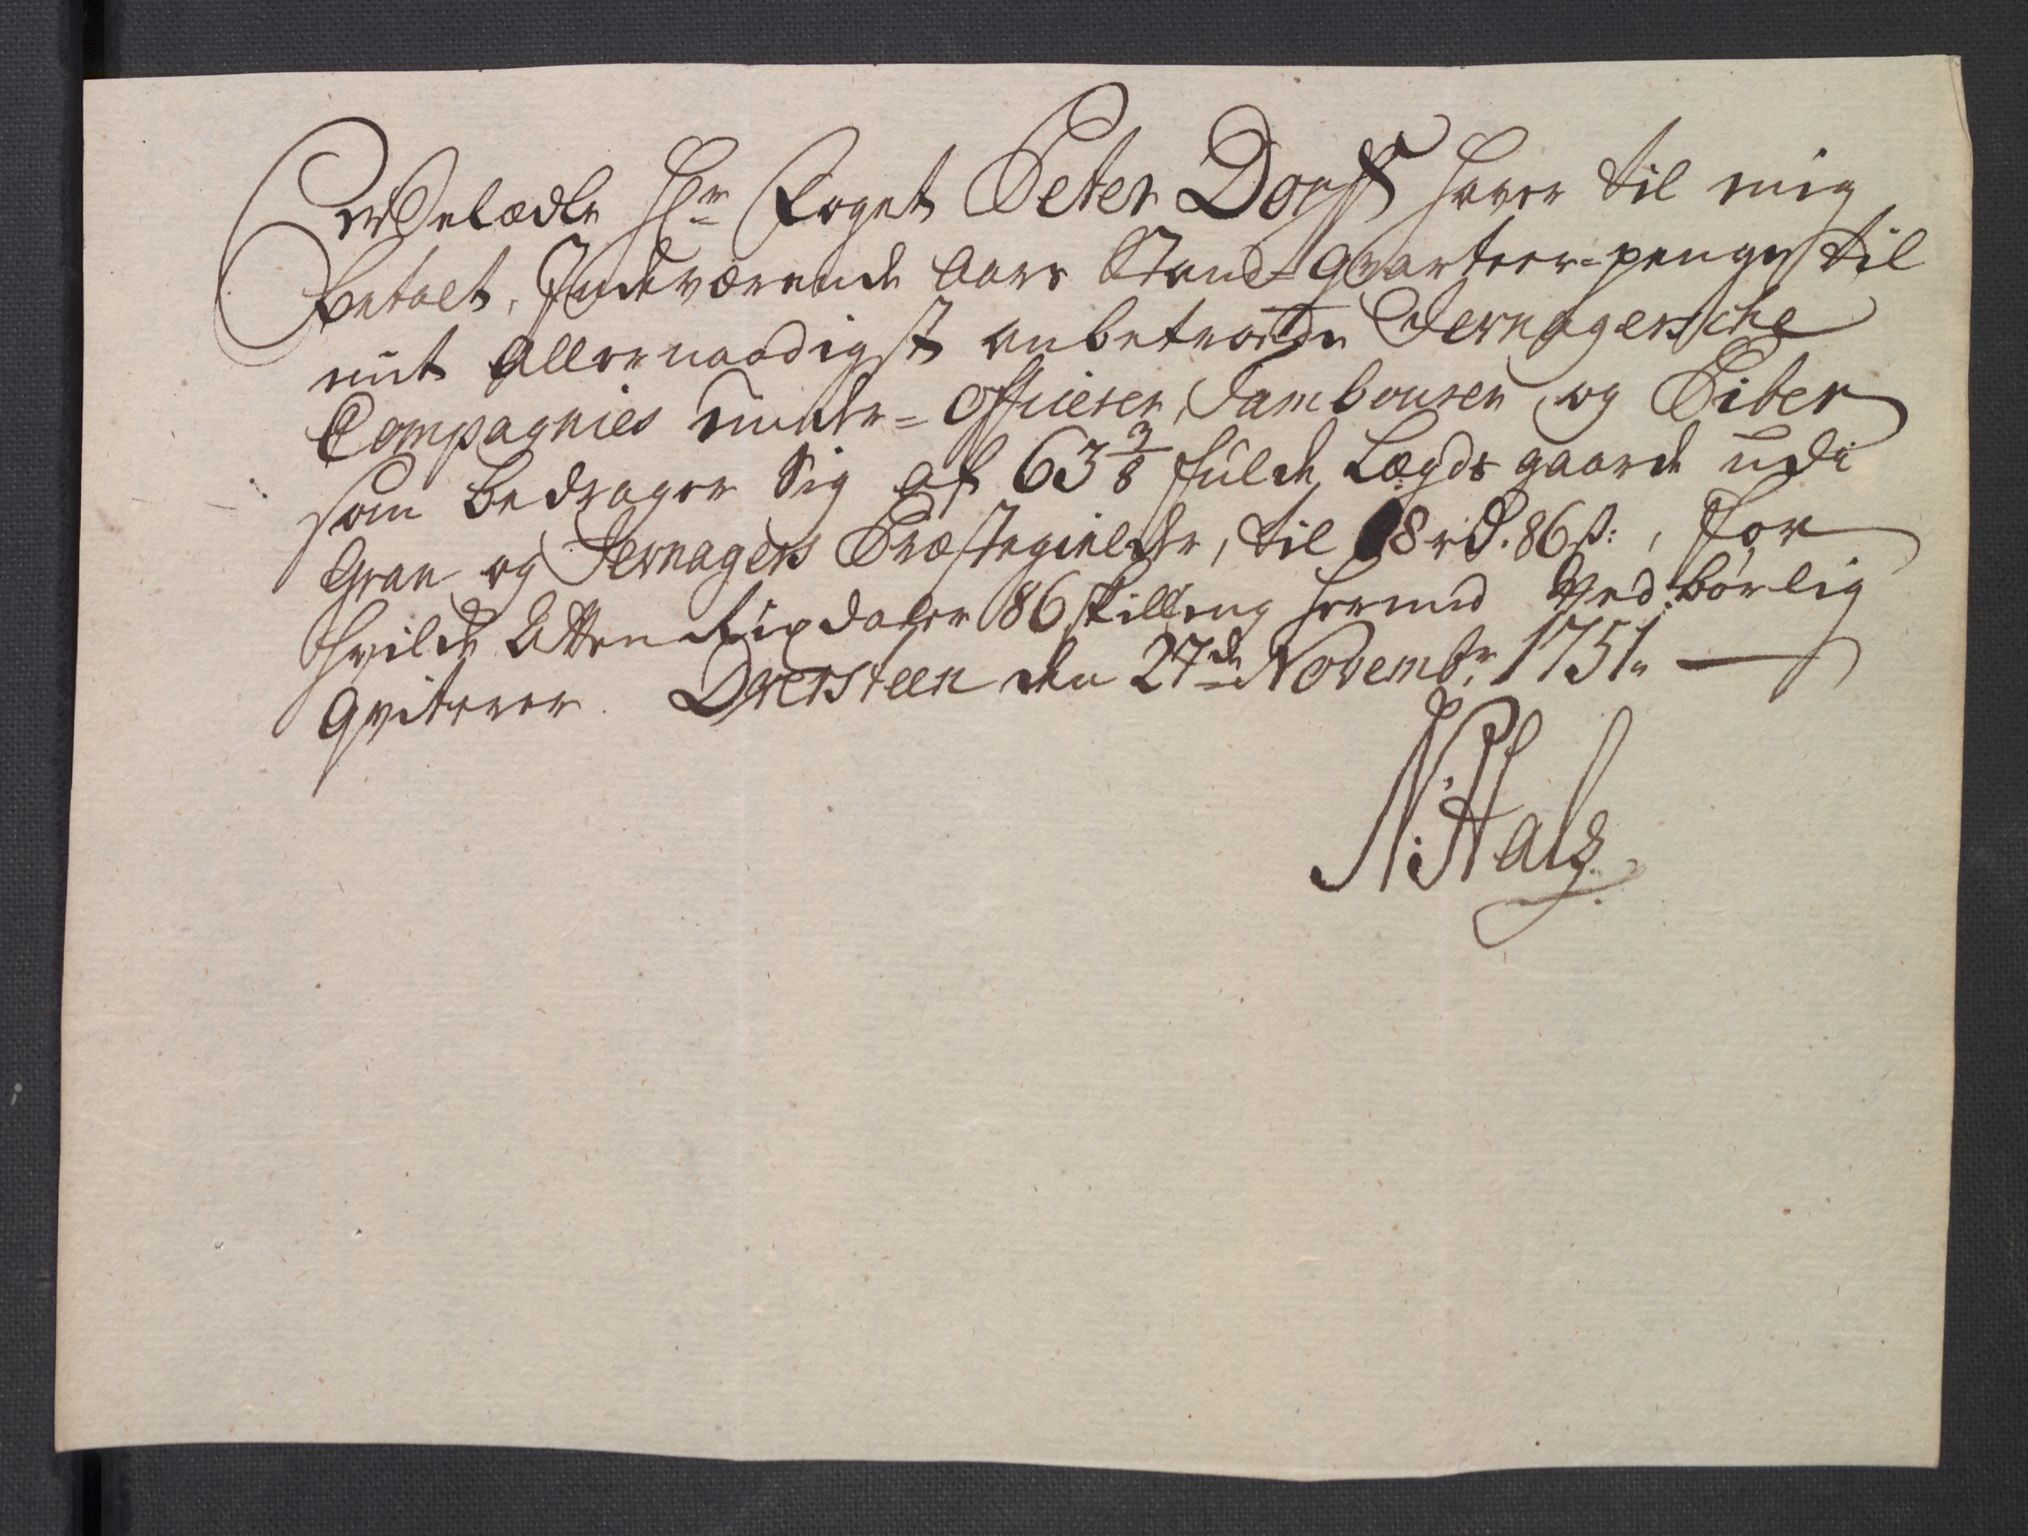 Velædle Hr Foget Peter Dorff haver til mig
betalt, Indeværende Aars Stand-Qvarteer-penge til
mit Allernaadigst anbetroede Jevnagersche
Compagnies Under-Officerer, Tambourer og Piber
som bedrager Sig af 63 3/8 fulde Lægds gaarde udi
Gran og Jevnagers Præstegielder, til 18 rd. 86 s:, for
hvilde Atten Rixdaler 86 skilling hermed Vedbørlig
Qviterer. Dversteen den 27de Novembr. 1751.
N: Hals